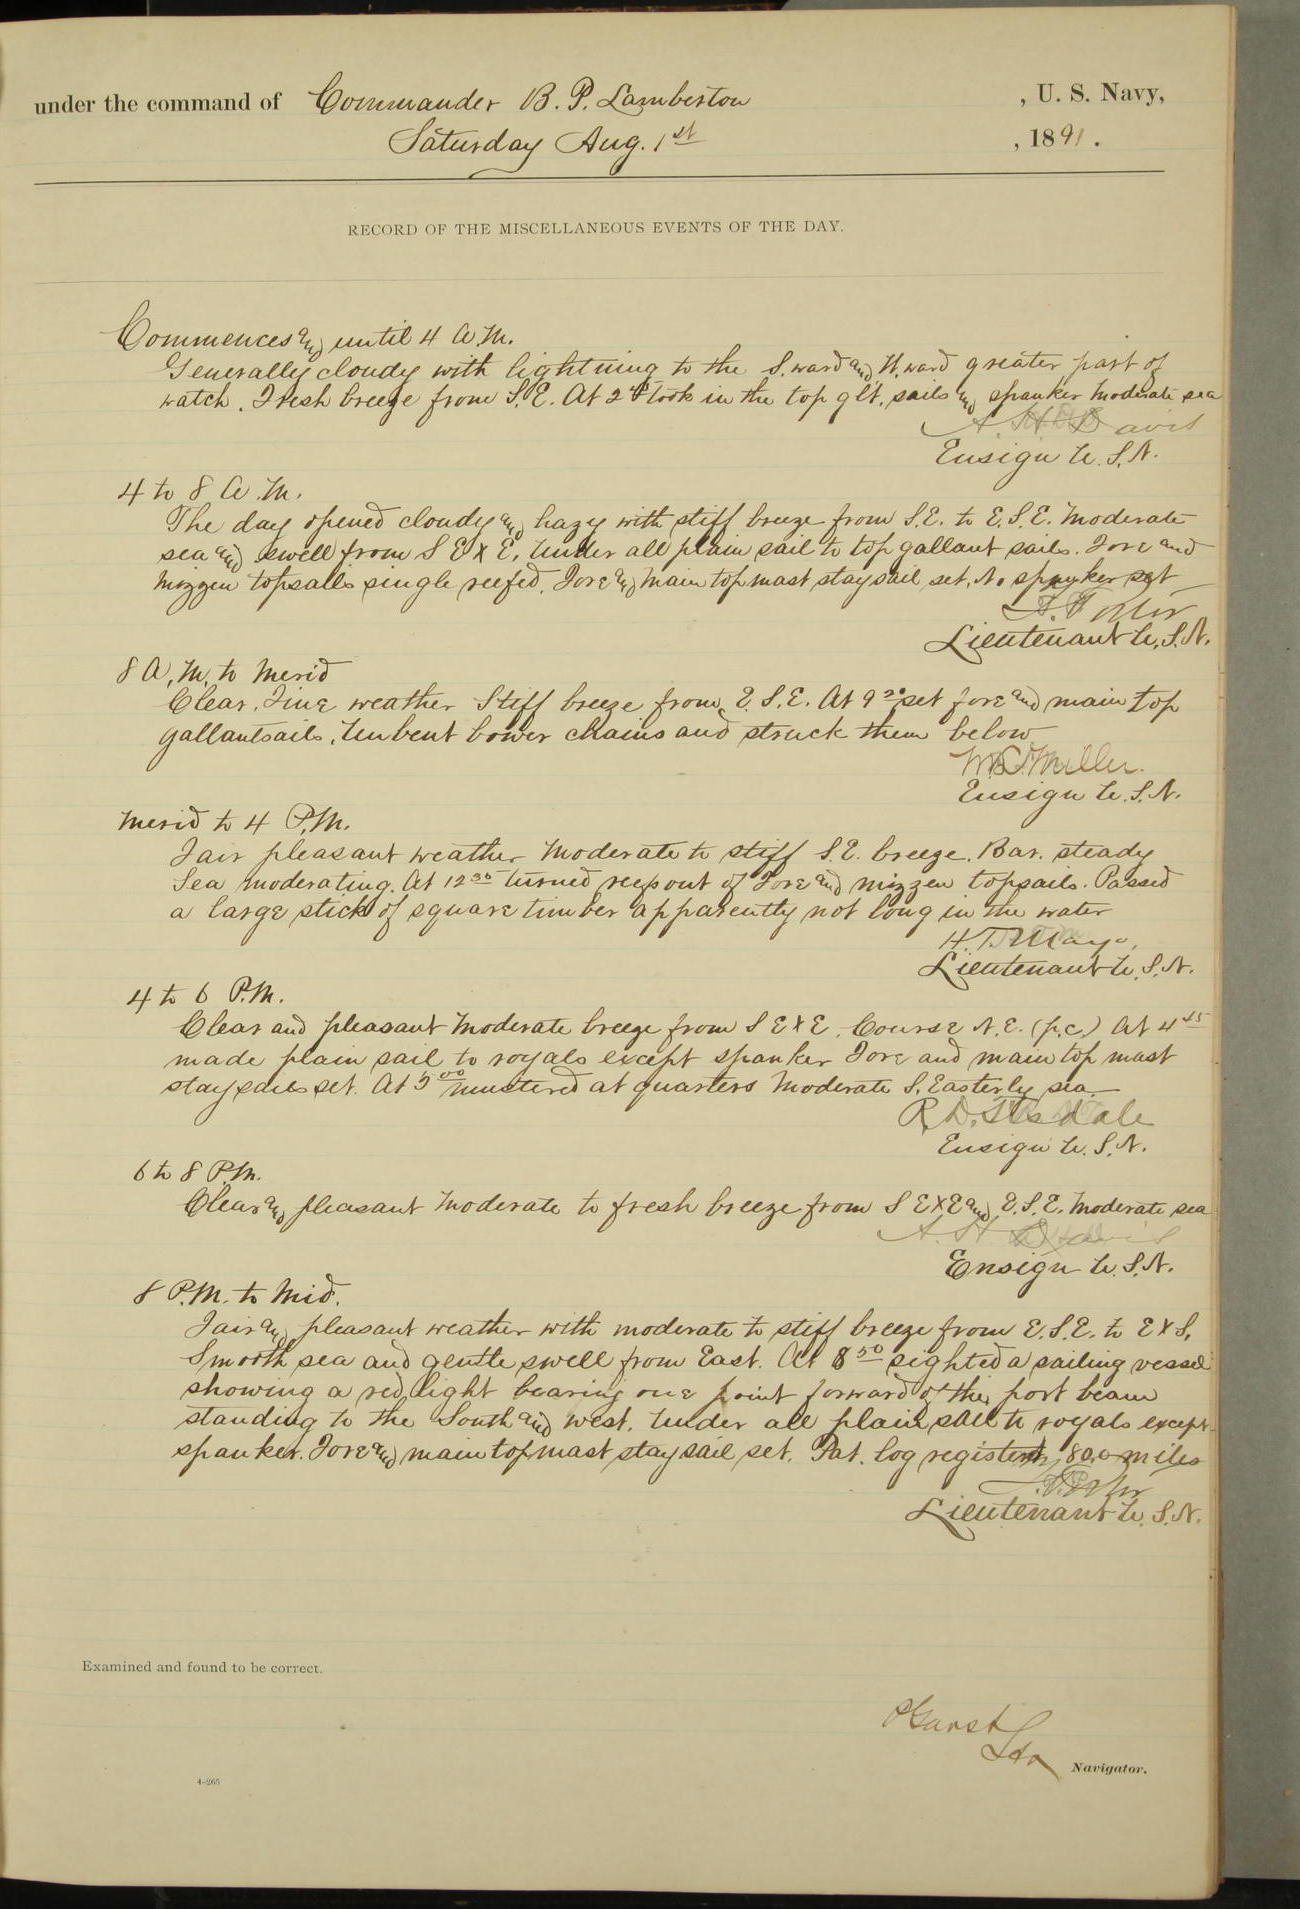 under the command of Commander B. P. Lamberton , U. S. Navy,
Saturday Aug. 1st , 1891.
RECORD OF THE MISCELLANEOUS EVENTS OF THE DAY.
Commences and until 4 A.M.
Generally cloudy with lightning to the S.ward and W.ward greater part of
watch. Fresh breeze from S.E. At 2 took in the top glt. sails and spanker Moderate sea
A. H. Davis
Ensign U.S.N.
4 to 8 A.M.
The day opened cloudy and hazy with stiff breeze from S.E. to E.S.E. Moderate
sea and swell from S E x E. Under all plain sail to top gallant sails. Fore and
Mizzen topsails single reefed. Fore and Main topmast staysail set. No spanker set
Lieutenant U.S.N.
8 A.M. to Merid
Clear. Fine weather Stiff breeze from E.S.E. At 9 30 set fore and main top
gallantsails. Unbent bower chains and struck them below
Miller.
Ensign U.S.N.
Merid to 4 P.M.
Fair pleasant weather Moderate to stiff S.E. breeze. Bar. steady
Sea moderating. At 12 35 turned reefs out of Fore and mizzen topsails. Passed
a large stick of square timber apparently not long in the water
H. T. Mayo,
Lieutenant U.S.N.
4 to 6 P.M.
Clear and pleasant Moderate breeze from S E x E. Course N.E. (p.c.) At 4 45
made plain sail to royals except spanker Fore and main top mast
staysails set. At 5 00 mustered at quarters Moderate S. Easterly sea.
R. D. Tisdale
Ensign U.S.N.
6 to 8 P.M.
Clear and pleasant Moderate to fresh breeze from S E x E and E.S.E. Moderate sea
A. H. Davis
Ensign U.S.N.
8 P.M. to Mid.
Fair and pleasant weather with moderate to stiff breeze from E.S.E. to E x S.
Smooth sea and gentle swell from East. At 8 50 sighted a sailing vessel
showing a red light bearing one point forward of the port beam
standing to the South and West. Under all plain sail to royals except
spanker. Fore and main topmast staysail set. Pat. log registers 80.0 miles
Lieutenant U.S.N.
Examined and found to be correct.
P Garst
Navigator.
4-265